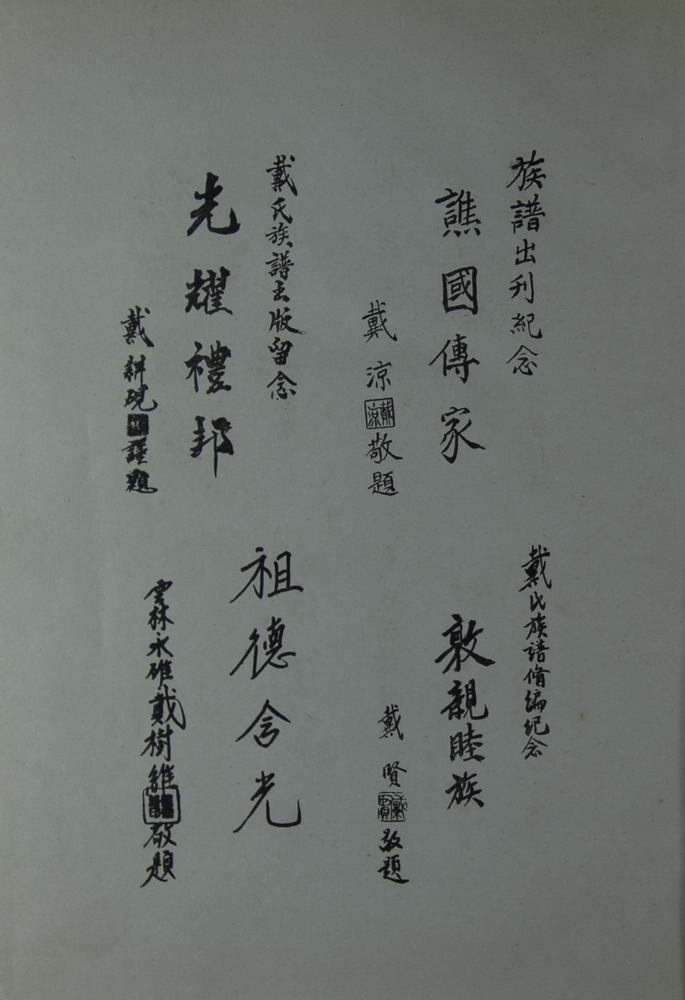 族譜出刊紀念
譙國傳家
戴涼敬題
戴氏族譜出版留念
光耀禮邦
戴耕硯謹題
戴氏族譜脩編紀念
敦親睦族
戴賢敬題
祖德含光
雲林永雄戴樹維敬題